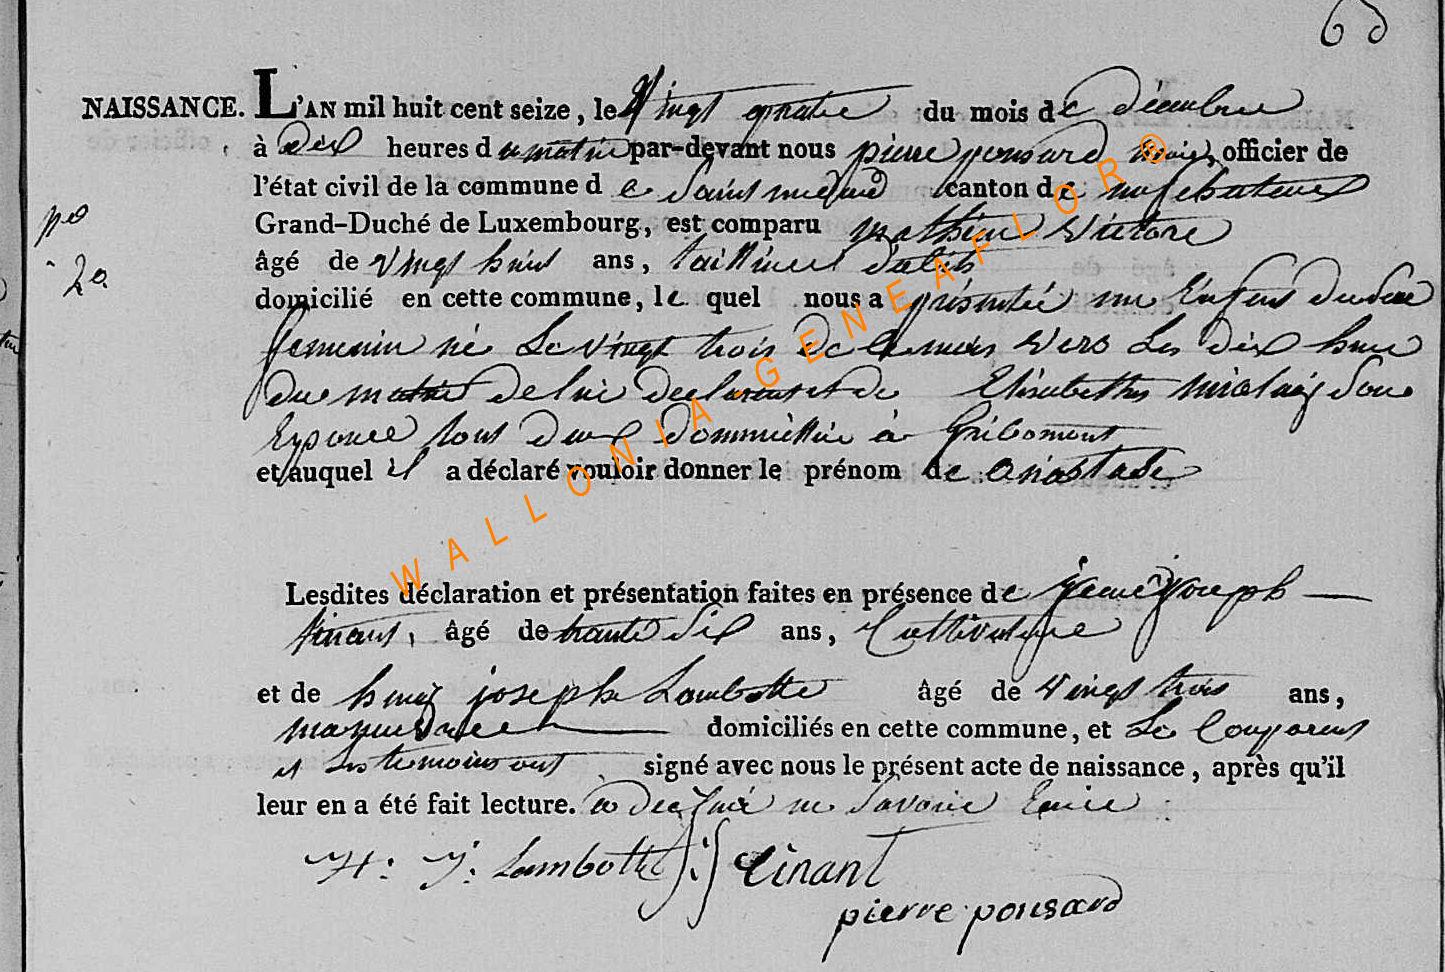 60
NAISSANCE. L'AN mil huit cent seize, le Vingt quatre du mois de décembre
à dix heures du matin par-devant nous pierre ponsard maire, officier de
l'état civil de la commune de Saint medard canton de neufchateau
Grand-Duché de Luxembourg, est comparu mathieu Victore
âgé de vingt huit ans, tailleur d'abits
domicilié en cette commune, le quel nous a présentée un Enfant du sexe
femenin né Le vingt trois de ce mois vers Les dix heure
du matin de lui declarant et de Elisabethe nicolaij son
Epouse tout deux dommicillié à Gribomont
et auquel il a déclaré vouloir donner le prénom de anastasie
Lesdites déclaration et présentation faites en présence de jean joseph
tinant, âgé de trante six ans, Cultivateure
et de henrij joseph Lambotte âgé de vingt trois ans,
manuvree domiciliés en cette commune, et Le Comparent
et Les temoins ont signé avec nous le présent acte de naissance, après qu'il
leur en a été fait lecture. a declaré ne Savoire Ecrire
H: J: Lambotte J:J tinant
pierre ponsard
WALLONIA-GENEAFLOR®